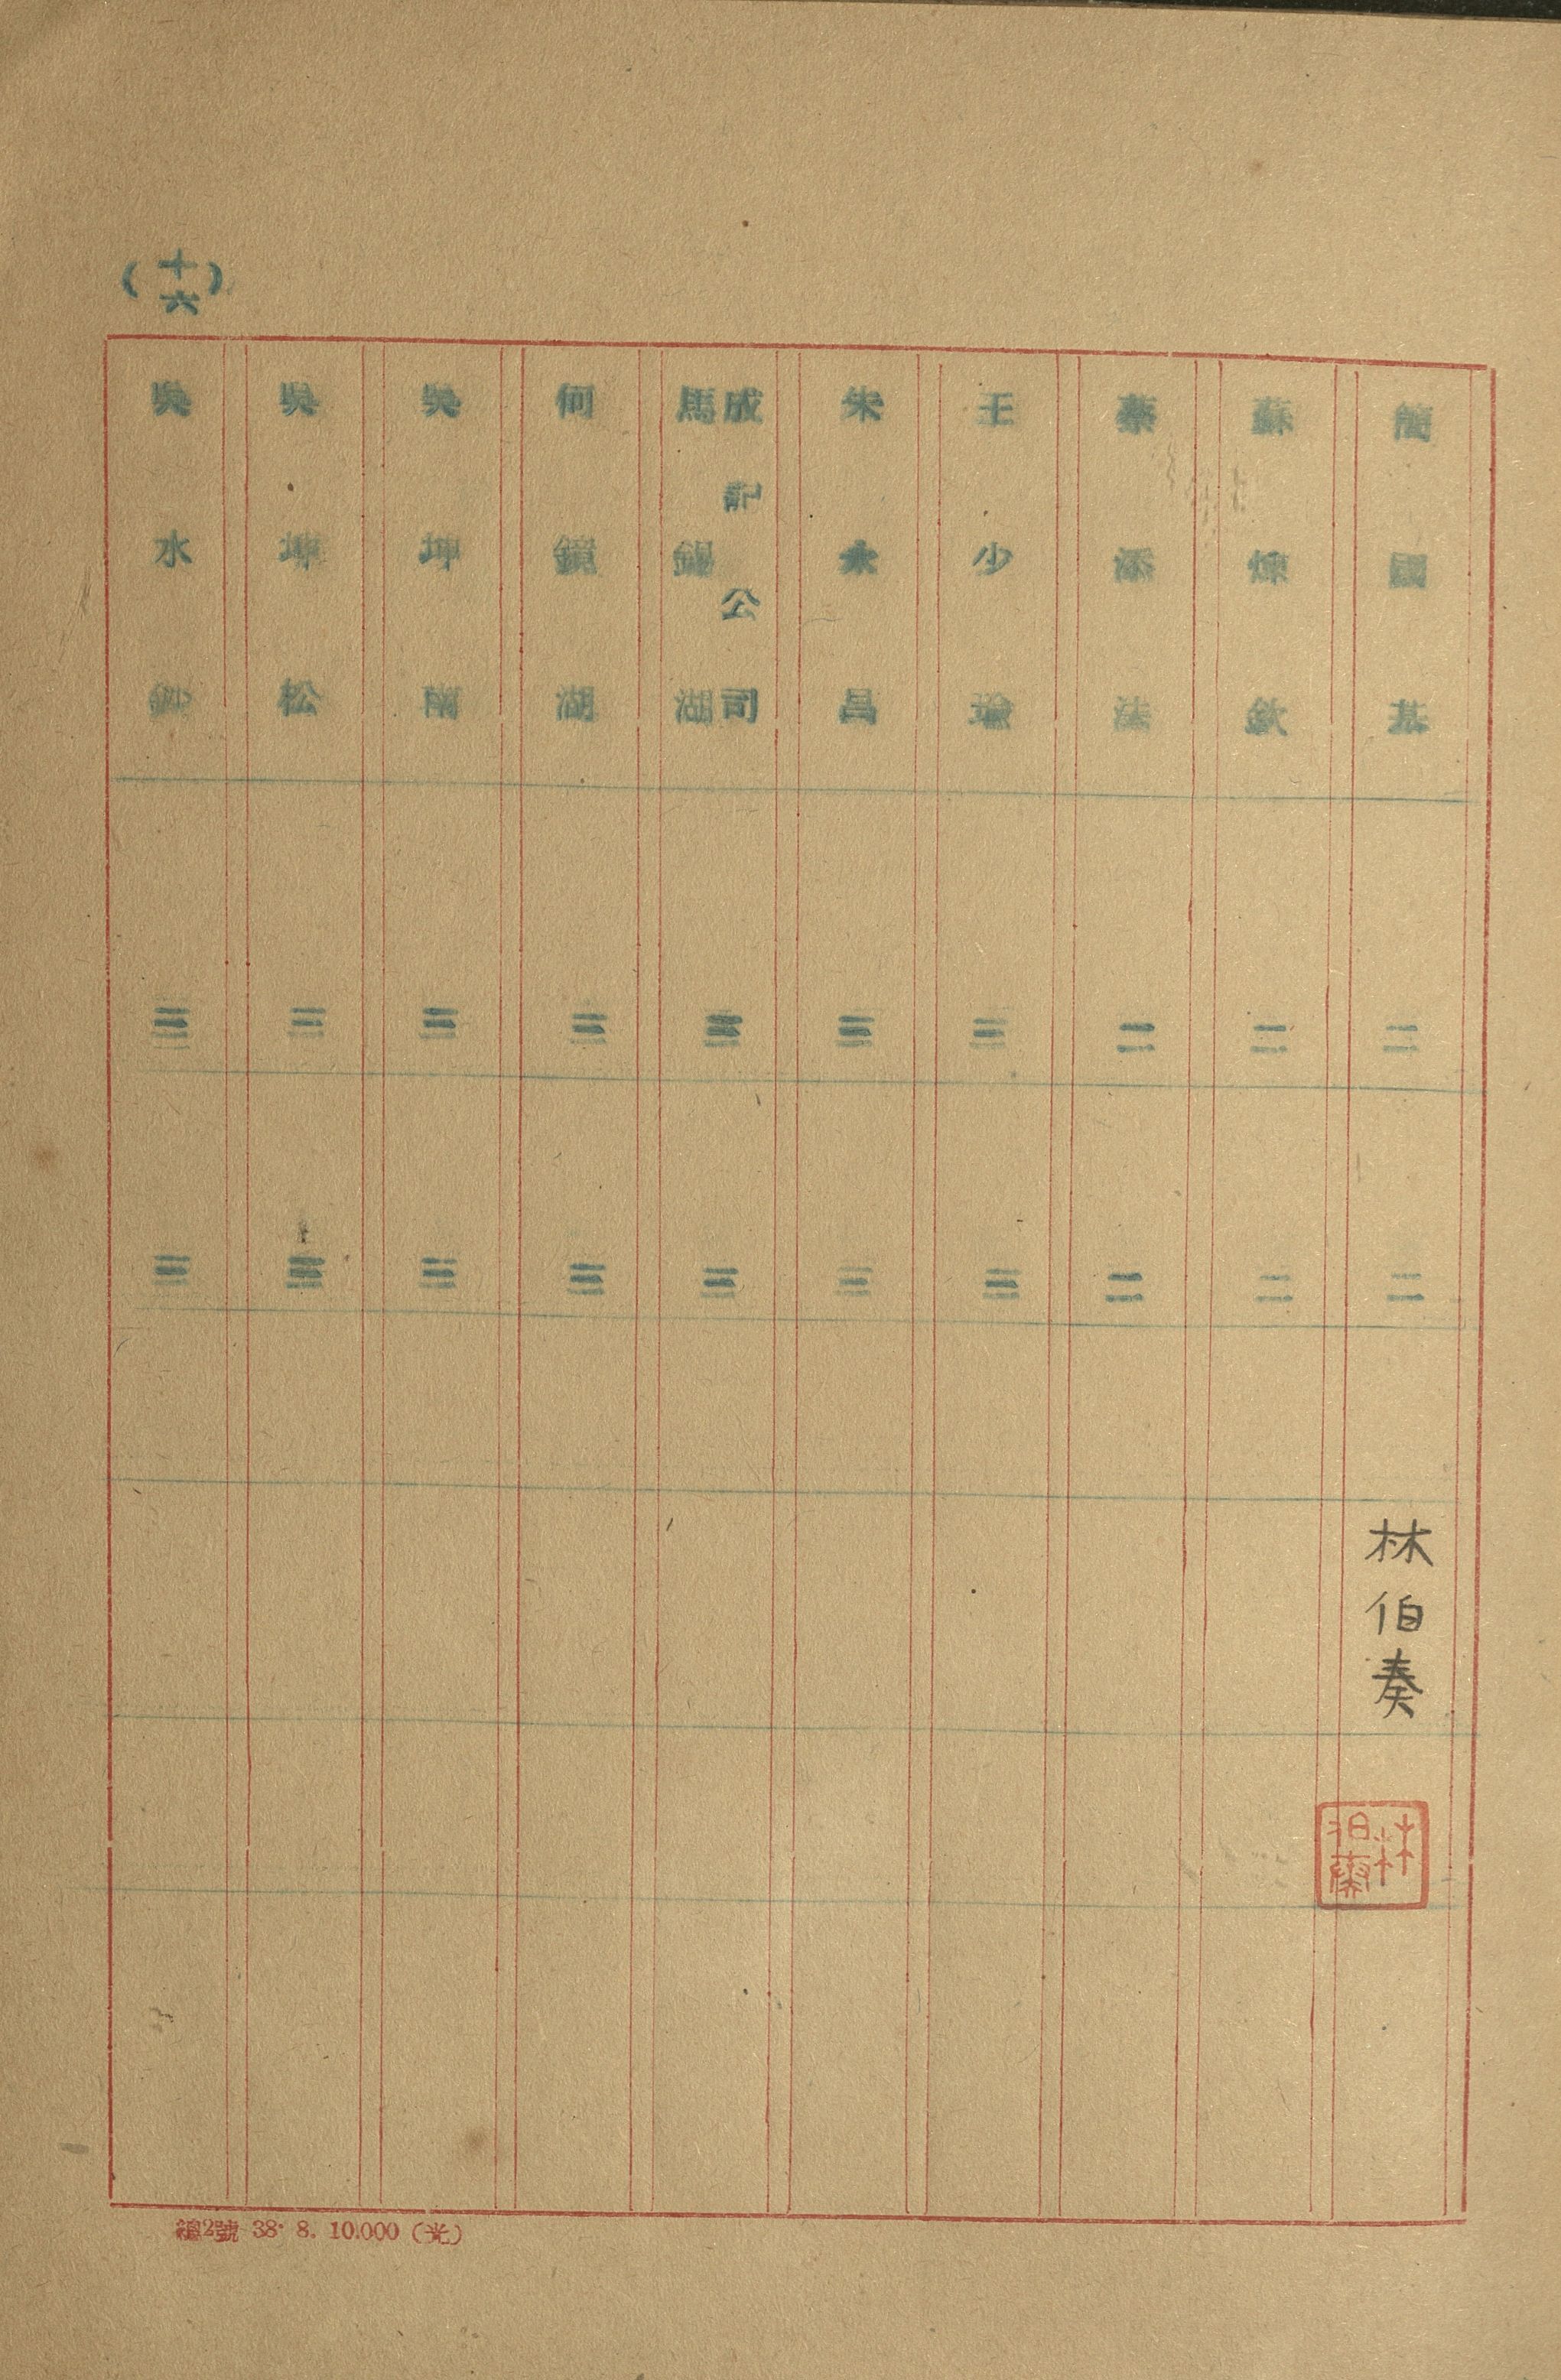 (十六)
簡國基 二 二 林伯奏
林伯奏
蘇煉欽 二 二
蔡添法 二 二
王少瑜 三 三
朱永昌 三 三
成記公司
馬錫湖 三 三
何鏡湖 三 三
吳坤南 三 三
吳坤松 三 三
吳水 三 三
總2號 38· 8. 10.000 (光)